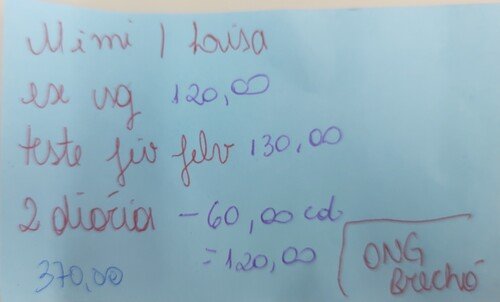 Mimi / Laisa
ex usg 120,00
teste fiv felv 130,00
2 diária - 60,00 cd
= 120,00
370,00
ONG
Brechó